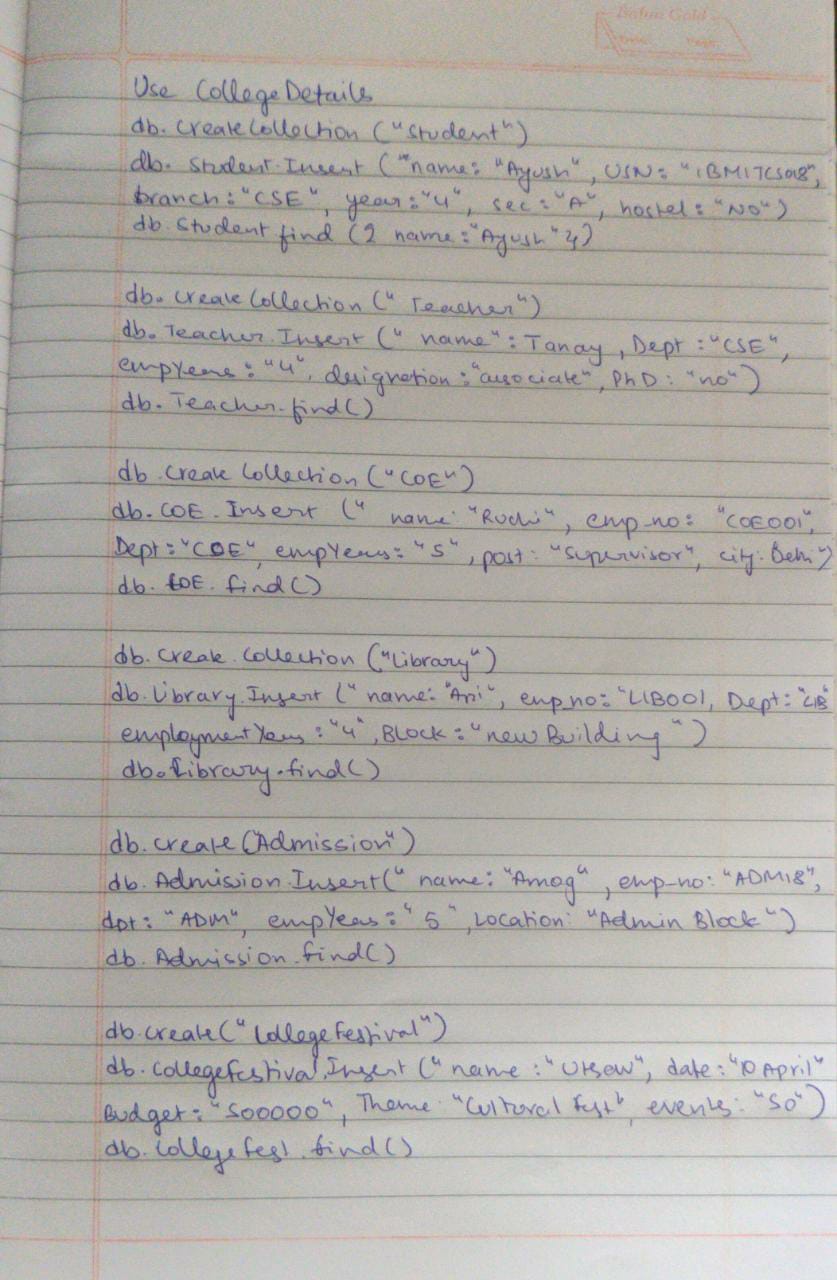 Bafna Gold
Date: Page:
Use CollegeDetails
db. Create Collection ("Student")
db. Student.Insert ("name: "Ayush", USN: "1BM17CS018",
branch: "CSE", year: "4", sec: "A", hostel: "No")
db. Student find ({ name: "Ayush" })
db. Create Collection (" Teacher")
db. Teacher. Insert (" name": Tanay, Dept : "CSE",
empYears: "4", designation: "associate", PhD: "no")
db. Teacher. find()
db. Create Collection ("COE")
db. COE. Insert (" name: "Ruchi", emp_no: "COE001",
Dept: "COE", empYears: "5", post: "Supervisor", city:
db. COE. find()
db. Create. Collection ("Library")
db. Library. Insert (" name: "Ani", emp_no: "LIB001, Dept: "LIB
employment Years : "4", Block : "new Building ")
db. Library. find()
db. Create ("Admission")
db. Admission. Insert(" name: "Amog", emp_no: "ADM18",
dpt: "ADM", empYears: "5", Location: "Admin Block")
db. Admission. find()
db. Create (" College Festival")
db. College Festival, Insert (" name : "Utsav", date: "10 April"
Budget: "500000", Theme: "Cultural fest", events: "50")
db. College Fest. find()